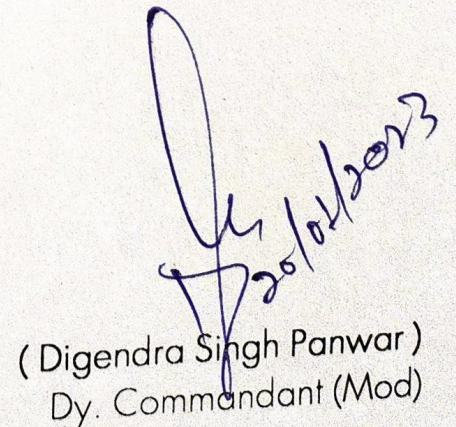 20/02/2023
( Digendra Singh Panwar )
Dy. Commandant (Mod)